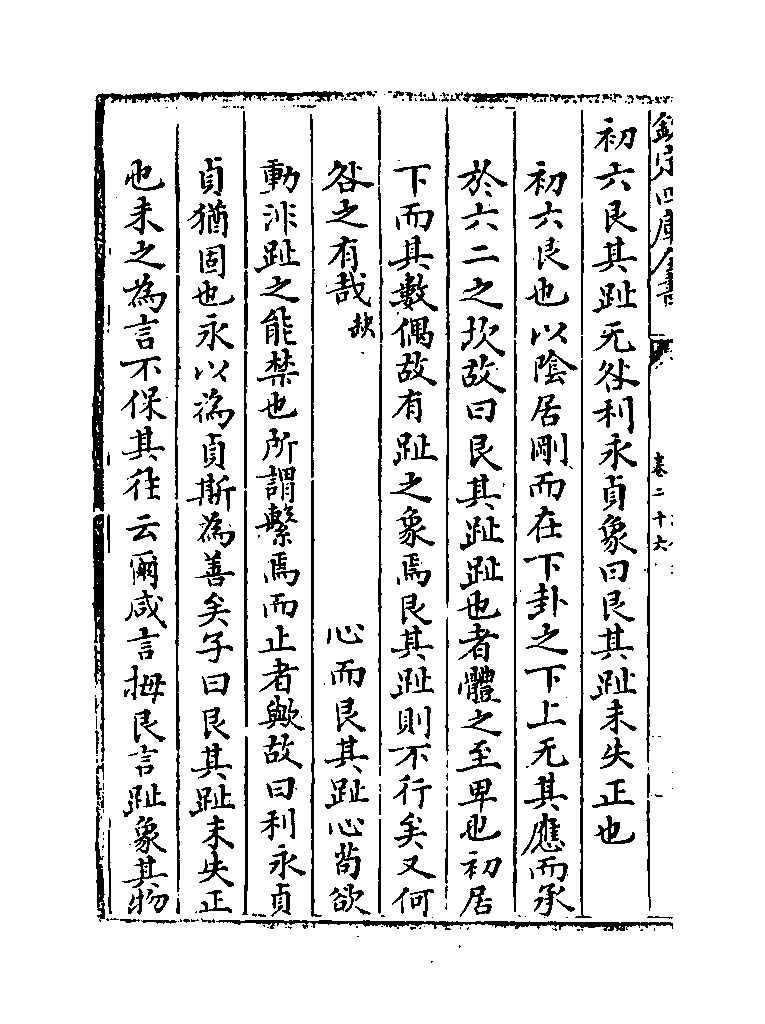 欽定四庫全書
卷二十六
初六艮其趾无咎利永貞象曰艮其趾未失正也
初六艮也以陰居剛而在下卦之下上无其應而承
於六二之坎故曰艮其趾趾也者體之至卑也初居
下而其數偶故有趾之象焉艮其趾則不行矣又何
咎之有哉 缺 心而艮其趾心茍欲
動非趾之能禁也所謂繫焉而止者歟故曰利永貞
貞猶固也永以為貞斯為善矣子曰艮其趾未失正
也未之為言不保其往云爾咸言拇艮言趾象其物